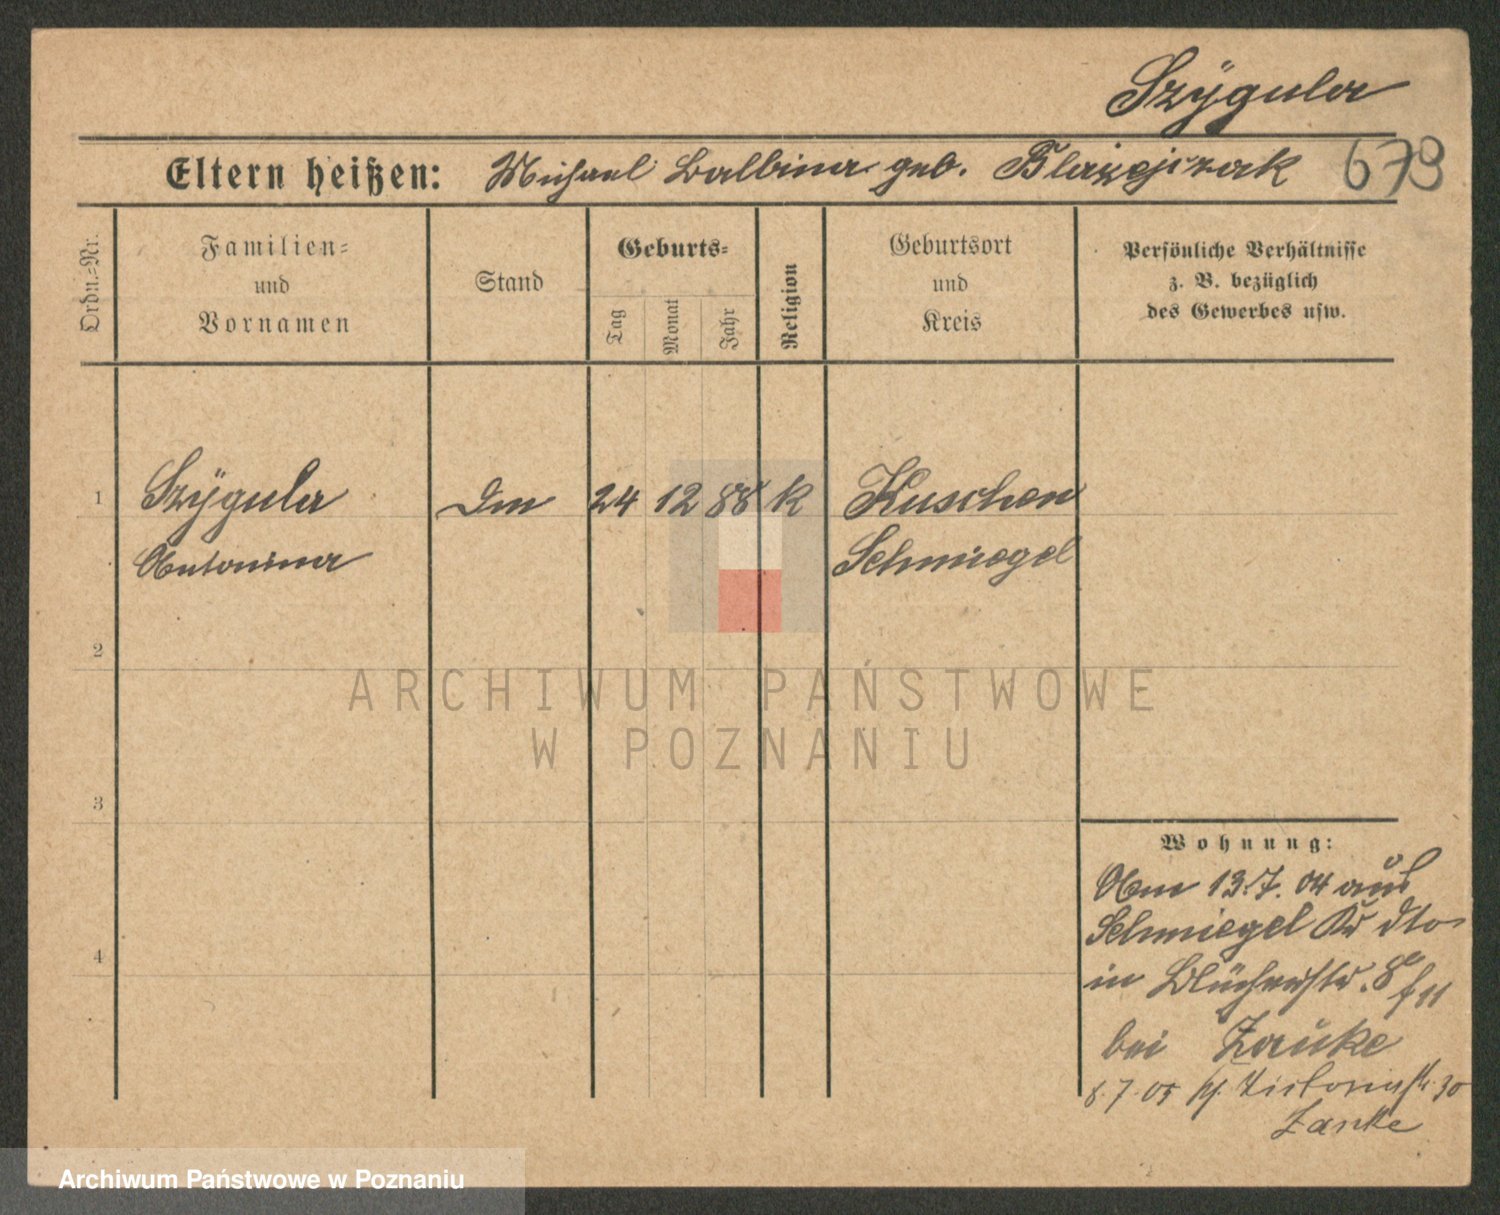 Szÿgula
Eltern heißen: Michael Balbina geb. Blazejczak 679
Ordn.-Nr.
Familien-
und
Vornamen
Stand
Geburts-
Tag
Monat
Jahr
Religion
Geburtsort
und
Kreis
Persönliche Verhältnisse
z. B. bezüglich
des Gewerbes usw.
1 Szÿgula 24 12 88 k Kuschen
Antonina Schmiegel
2
3
4
Wohnung:
13.7. 04 aus
Schmiegel Kr dto
in Blücherstr. 8a
bei Zauke
8.7.05 Victoriastr. 30
Zauke
ARCHIWUM PAŃSTWOWE
W POZNANIU
Archiwum Państwowe w Poznaniu